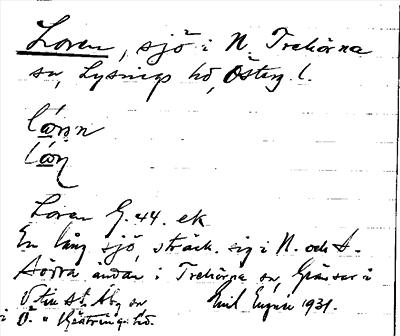 Loren, sjö i N. Trehörna
sn, Lysings hd, Österg. l.
Loren G. 44. ek
En lång sjö, sträck. sig i N. och S.
Södra ändan i Trehörna sn, Gränsar i
V till St. Åby sn
i Ö. " Göstrings hd.
Emil 1931.